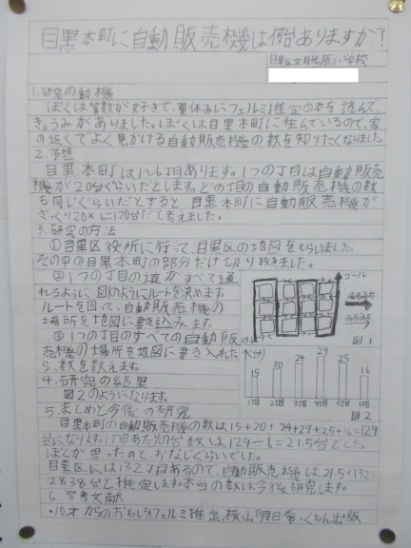 目黒本町に自動販売機は何台ありますか?
目黒区立月光原小学校
1.研究の動機
ぼくは算数が好きで、夏休みにフェルミ推定の本を読んで、
きょうみがありました。ぼくは目黒本町に住んでいるので、家
の近くでよく見かける自動販売機の数を知りたくなりました。
2.予想
目黒本町は1〜6丁目あります。1つの丁目は自動販売
機が20台ぐらいだとします。どの丁目の自動販売機の数
も同じくらいだとすると、目黒本町に自動販売機が
ざっくり20×6に120台だと考えました。
3.研究の方法
①目黒区役所に行って、目黒区の地図をもらいました。
その中の目黒本町の部分だけ切り抜きました。
②1つの丁目の道がすべて通
れるように、図のようにルートを決めます。
ルートを回って、自動販売機の
場所を地図に書き込みます。
③1つの丁目のすべての自動販
売機の場所を地図に書き入れた
ら、数を数えます。
ゴール
図1
4.研究の結果
図2のようになります。
(台)
15 20 24 29 25 16
1丁目 2丁目 3丁目 4丁目 5丁目 6丁目
図2
5.まとめと今後の研究
目黒本町の自動販売機の数は15+20+24+29+25+16=129
台になります。1丁目あたりの台数は129÷6=21.5台でした。
ぼくが思ったのとおなじくらいでした。
目黒区には132丁目あるので、自動販売機は21.5×132=
2838台と推定します。本当の数は今後研究します。
6.参考文献
・10才からのおもしろ!フェルミ推定、横山明日希、くもん出版